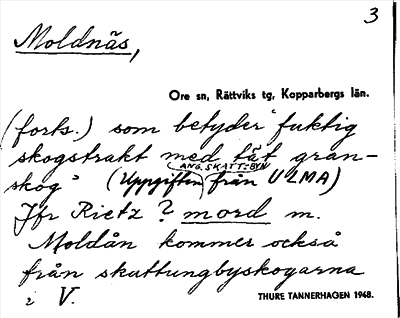 3
Moldnäs,
Ore sn, Rättviks tg, Kopparbergs län.
(forts.) som betyder "fuktig
skogstrakt med tät gran-
ANG. SKATT:BYN
skog" (Uppgiften från ULMA)
Jfr Rietz ? mord m.
Moldån kommer också
från skattungbyskogarna
i V.
THURE TANNERHAGEN 1948.